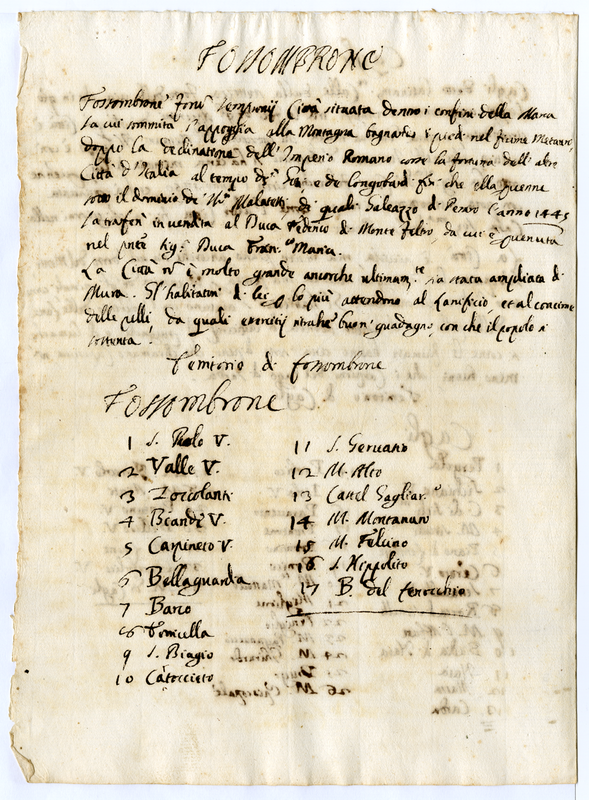 FOSSOMBRONE
Fossombrone Foru Sempronij Città situata dentro i confini della Marca
la cui sommità s'appoggia alla Montagna bagnatisi i piedi nel fiume Metauro,
doppo la declinatione dell'Imperio Romano corse la fortuna dell'altre
Città d'Italia al tempo de e de Longobardi fin che ella pervenne
sotto il dominio de Malatesti, de quali Galeazzo di Pesaro l'anno 1445
la trasferì in vendita al Duca Federico di Monte Feltro da cui è pervenuta
nel Duca Fran.co Maria.
La Città nō è molto grande ancorche ultimam.te sia stata ampliata di
Mura. Gl'habitatori di lei p lo più attendono al Lanificio, et al concime
delle pelli, da quali esercitij ritrahe buon guadagno, con che il popolo si
sostenta.
Territorio di fossombrone
Fossombrone
1 S. Paolo V.
2 Valle V.
3 Zoccolanti
4 Biandi V.
5 Carpineto V.
6 Bellaguardia
7 Barco
8 Torricella
9 S. Biagio
10
11 S. Gervasio
12 M. Alto
13 Castel Gagliar.o
14 M. Montanaro
15 M. Felcino
16 S. Hippolito
17 B. del ferocchio